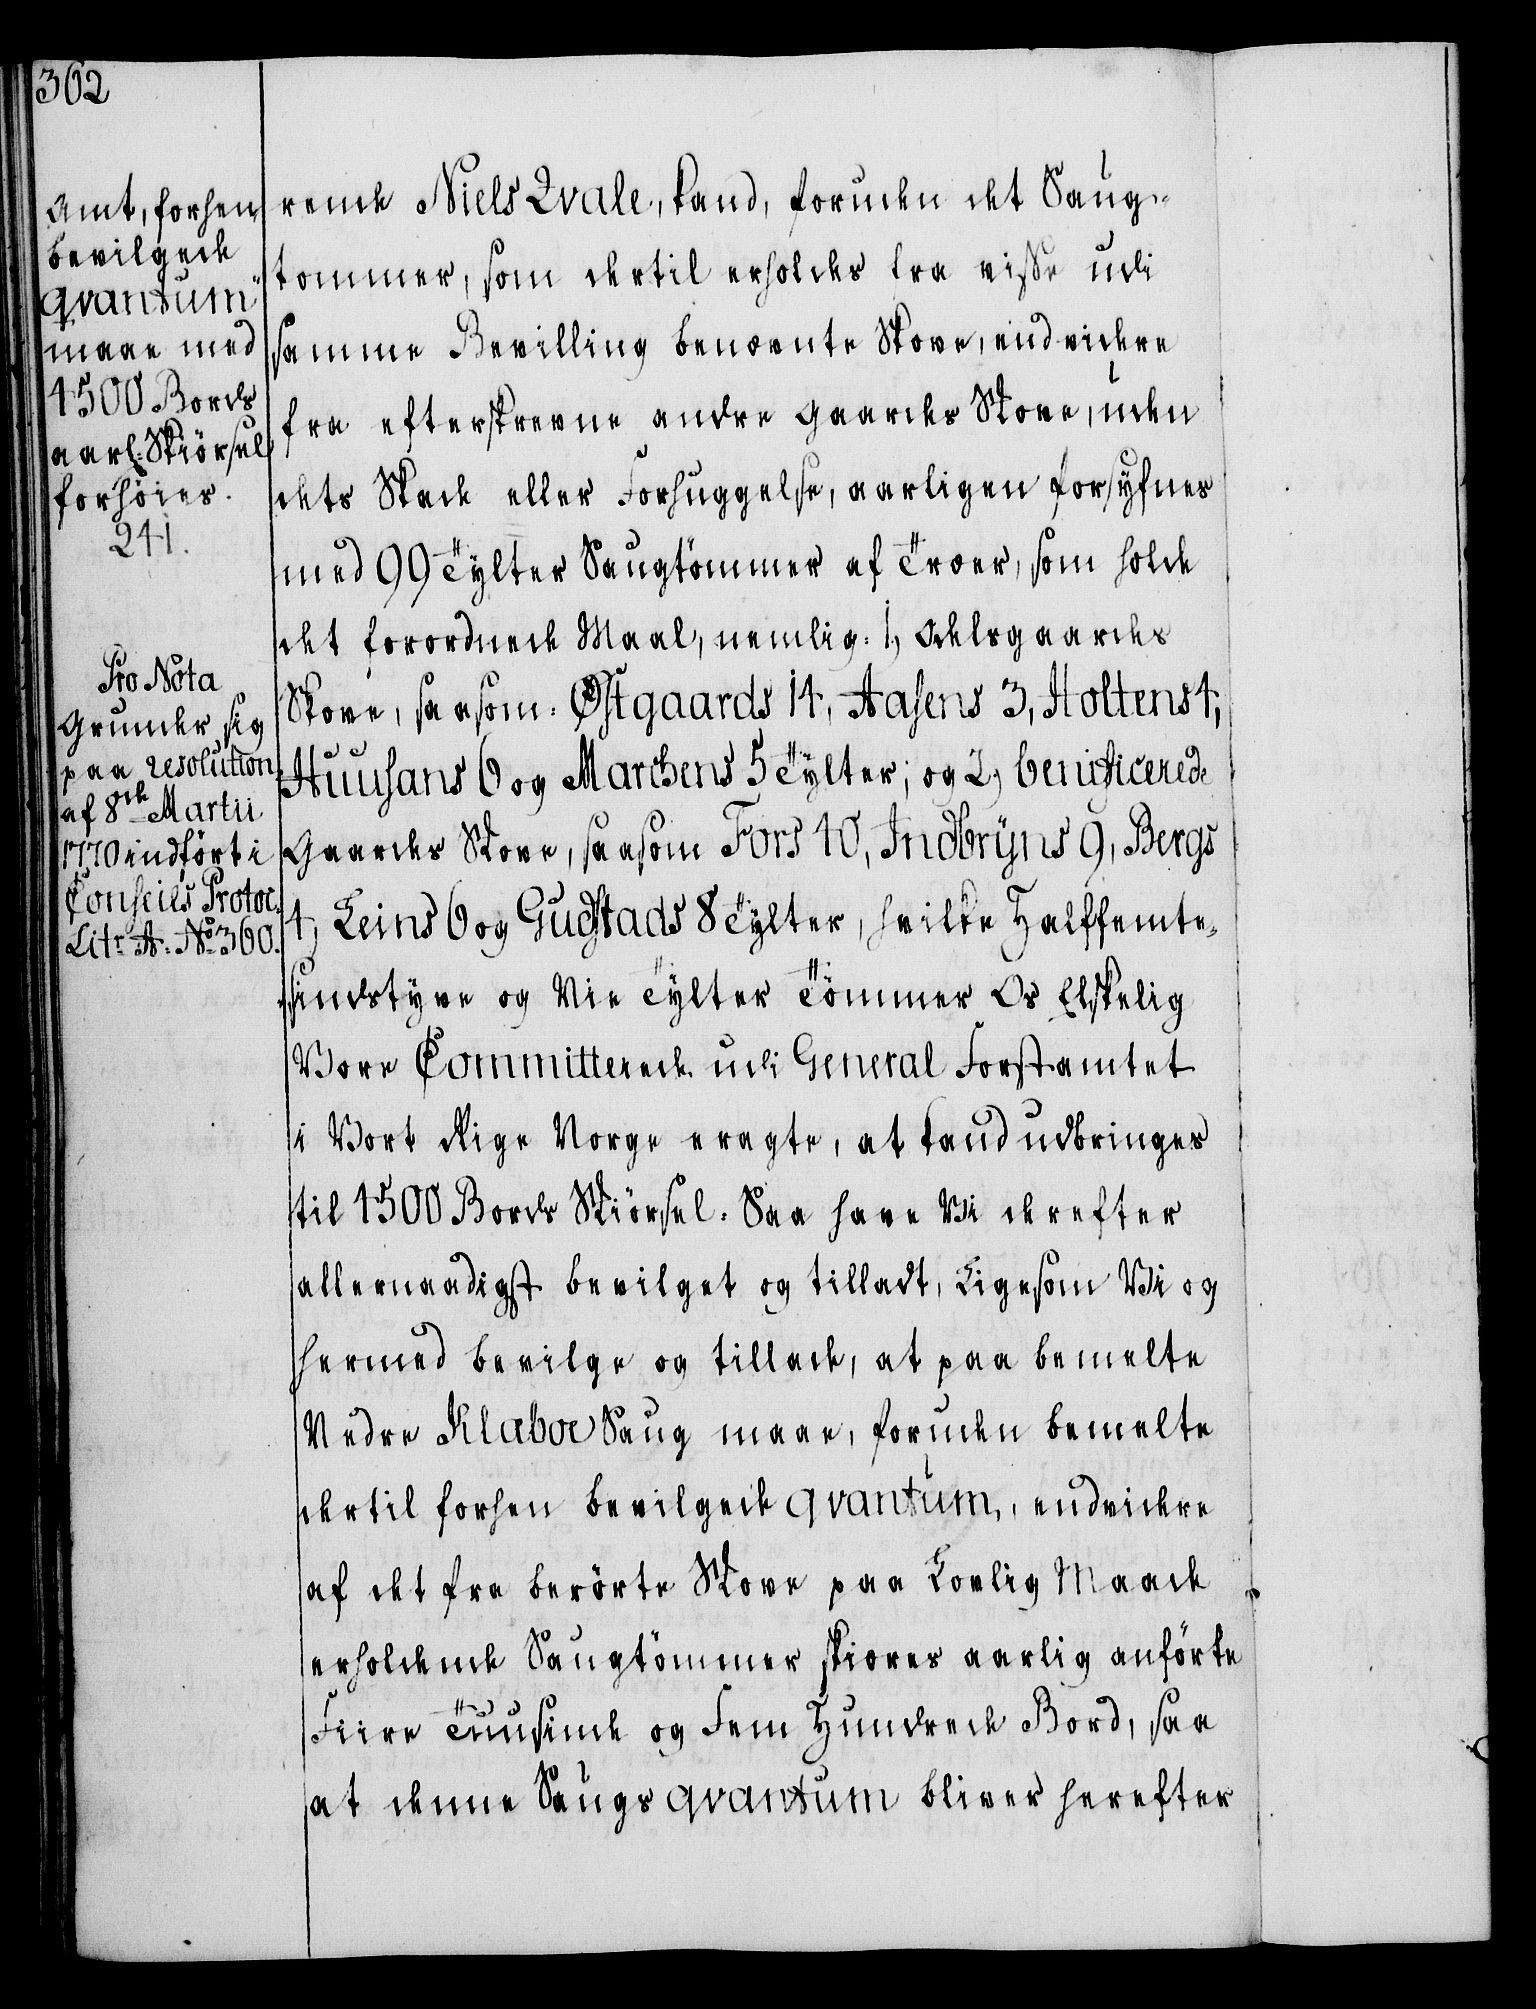 362
Amt, forhen
bevilgede
qvantum
maae med
4500 Bords
aarl: Skiörsel
forhöies.
241.
Pro Nota
Grunder sig
paa resolution
af 8de Martii
1770 indfört i
Conseils Protoc:
Litr A: No 360.
rende Niels Qvale, kand, foruden det Saug-
tømmer, som dertil erholdes fra visse udi
samme Bevilling benævnte Skove, endvidere
fra efterskrevne andre Gaardes Skove, uden
dets Skade eller Forhuggelse, aarligen forsyfnes
med 99 Tylter Saugtömmer af Træer, som holde
det forordnede Maal, nemlig: 1, Odelsgaardes
Skove, saasom: Østgaards 14, Aasens 3, Holtens 4,
Huusans 6 og Marchens 5 Tylter; og 2, benificerede
Gaardes Skove, saasom Fors 40, Indbrÿns 9, Bergs
4, Leins 6 og Gudstads 8 Tylter, hvilke Halffemte-
sindstyve og Nie Tylter Tömmer Os Elskelig
Vore Committerede udi General Forstamtet
i Vort Rige Norge eragte, at kand udbringes
til 4500 Bords Skiörsel. Saa have Vi derefter
allernaadigst bevilget og tilladt, Ligesom Vi og
hermed bevilge og tillade, at paa bemelte
Nedre Klæboe Saug maae, foruden bemelte
dertil forhen bevilgede qvantum, endvidere
af det fra berörte Skove paa Lovlig Maade
erholdende Saugtömmer skiæres aarlig anförte
Fiire Tuusinde og Fem Hundrede Bord, saa
at denne Saugs qvantum bliver herefter